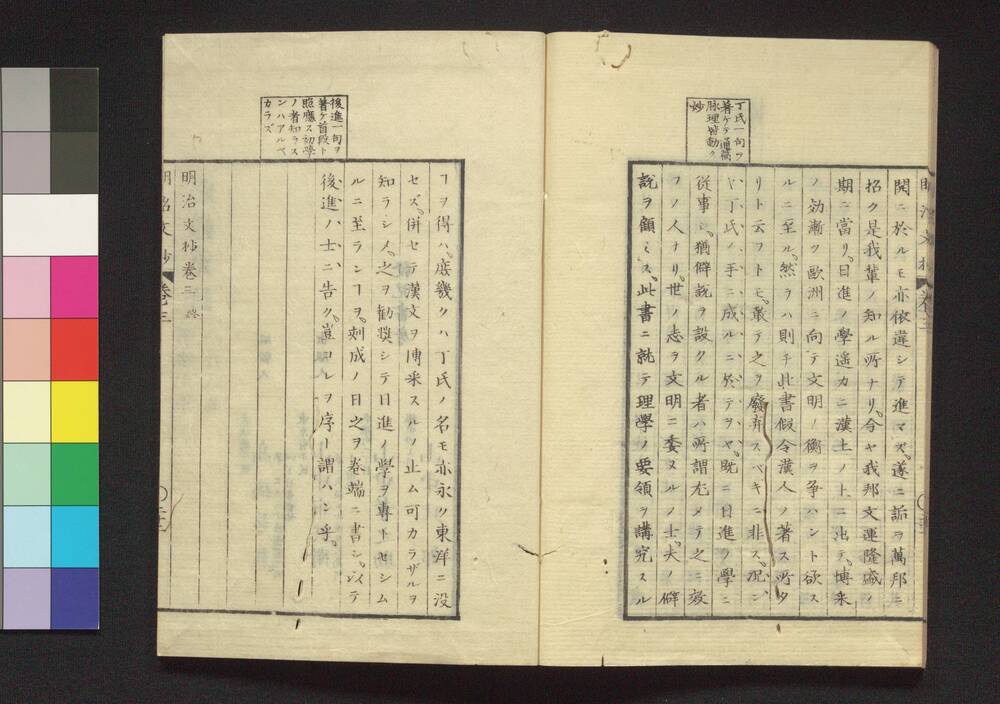 丁氏一句ヲ
著ケテ通篇
脉理皆動ク
妙
開ニ於ルモ亦依違シテ進マズ。遂ニ詬ヲ萬邦ニ
招ク是我輩ノ知ル所ナリ。今ヤ我邦文運隆盛ノ
期ニ當リ。日進ノ學遙カニ漢土ノ上ニ出テ。博采
ノ効漸ク歐洲ニ向テ文明ノ衡ヲ爭ハント欲ス
ルニ至ル。然ラハ則チ此書假令漢人ノ著ス所タ
リト云フトモ。敢テ之ヲ廢弃スベキニ非ス。况ン
ヤ丁氏ノ手ニ成ルニ於テヲヤ。既ニ日進ノ學ニ
從事シ。猶僻説ヲ設クル者ハ所謂尤メテ之ニ效
フノ人ナリ。世ノ志ヲ文明ニ委ヌルノ士。夫ノ僻
説ヲ顧ミス。此書ニ就テ理學ノ要領ヲ講究スル
後進一句ヲ
著ケ首段ト
照應ス初學
ノ者知ラス
ンハアルベ
カラズ
ヿヲ得ハ。庶幾クハ丁氏ノ名モ亦永ク東洋ニ没
セズ。併セテ漢文ヲ博采スルノ止ム可カラザルヲ
知ラシメ。之ヲ勸奬シテ日進ノ學ヲ專トセシム
ルニ至ランヿヲ。刻成ノ日之ヲ卷端ニ書シ。以テ
後進ハ士ニ告ク。豈コレヲ序ト謂ハン乎。
明治文抄卷三 終